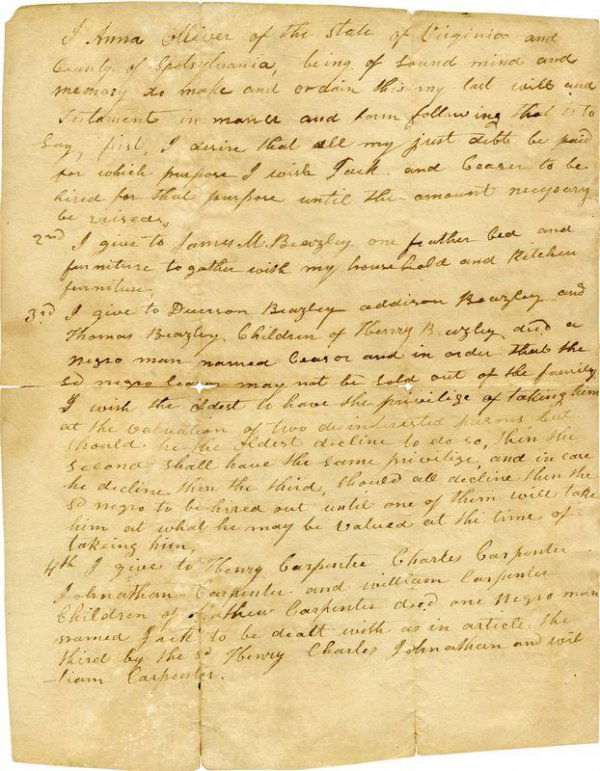 I Anna Olliver of the state of Virginia and
County of Spotsylvania, being of sound mind and
memory do make and ordain this my last will and
Testament in maner and form following that is to
Say, first, I desire that all my just debts be paid
for which purpose I wish Jack and Ceaser to be
hired for that purpose until the amount necessary
be raised,,
2nd I give to James M. Beazley one feather bed and
furniture to gather with my household and Kitchen
furniture
3rd I give to Duerson Beazley addison Beazley and
Thomas Beazley Children of Henry Beazley died a
negro man named Ceasor and in order that the
sd negro Ceasor may not be sold out of the family
I wish the oldest to have the privilige of taking him
at the valuation of two disinterested parsons, but
should he the oldest decline to do so, then the
second shall have the same privilige, and in case
he decline then the third, should all decline then the
sd negro to be hirred out until one of them will take
him at what he may be valued at the time of
taking him,
4th I give to Henry Carpenter Charles Carpenter
Johnathan Carpenter and william Carpenter
Children of Mathew Carpenter died one Negro man
named Jack to be dealt with as in article the
third by the sd Henry Charles Johnathan and wil
liam Carpenter.